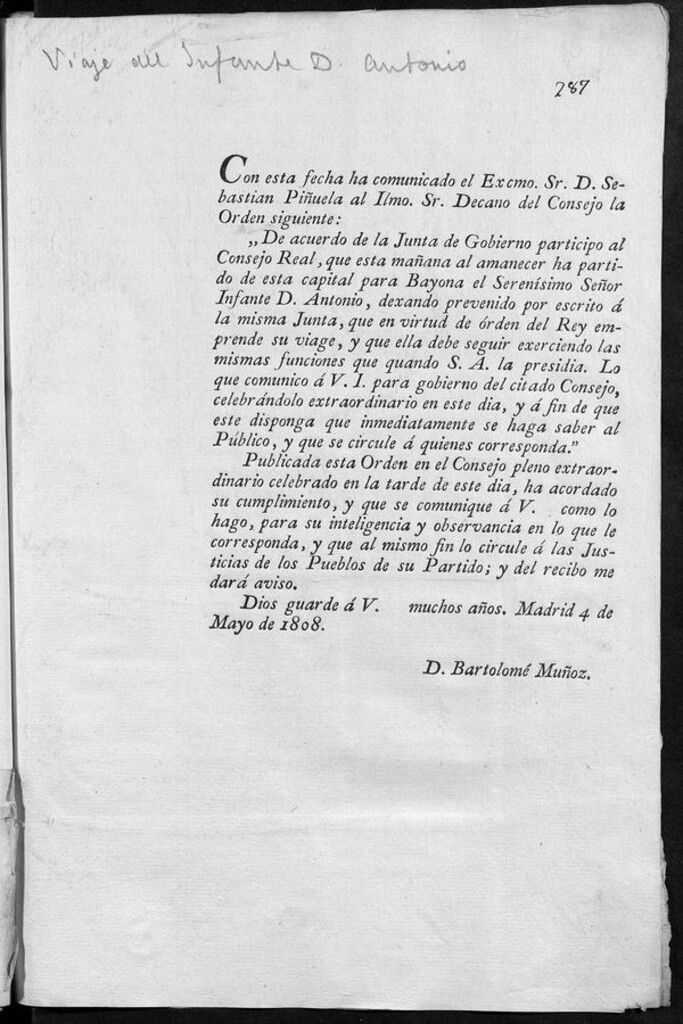 Viaje del Infante D. Antonio
287
Con esta fecha ha comunicado el Excmo. Sr. D. Se-
bastian Piñuela al Ilmo. Sr. Decano del Consejo la
Orden siguiente:
„De acuerdo de la Junta de Gobierno participo al
Consejo Real, que esta mañana al amanecer ha parti-
do de esta capital para Bayona el Serenísimo Señor
Infante D. Antonio, dexando prevenido por escrito á
la misma Junta, que en virtud de órden del Rey em-
prende su viage, y que ella debe seguir exerciendo las
mismas funciones que quando S. A. la presidia. Lo
que comunico á V. I. para gobierno del citado Consejo,
celebrándolo extraordinario en este dia, y á fin de que
este disponga que inmediatamente se haga saber al
Público, y que se circule á quienes corresponda.”
Publicada esta Orden en el Consejo pleno extraor-
dinario celebrado en la tarde de este dia, ha acordado
su cumplimiento, y que se comunique á V. como lo
hago, para su inteligencia y observancia en lo que le
corresponda, y que al mismo fin lo circule á las Jus-
ticias de los Pueblos de su Partido; y del recibo me
dará aviso.
Dios guarde á V. muchos años. Madrid 4 de
Mayo de 1808.
D. Bartolomé Muñoz.